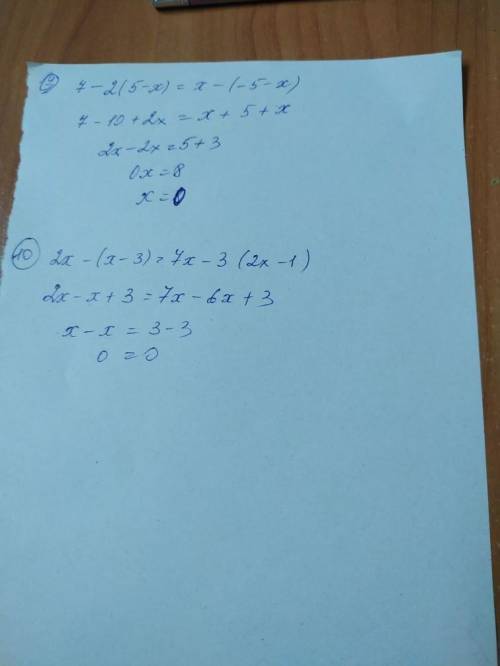 9 7 - 2(5-x) = x - (-5-x)
7 - 10 + 2x = x + 5 + x
2x - 2x = 5 + 3
0x = 8
x = 0
10 2x - (x - 3) = 7x - 3 (2x - 1)
2x - x + 3 = 7x - 6x + 3
x - x = 3 - 3
0 = 0